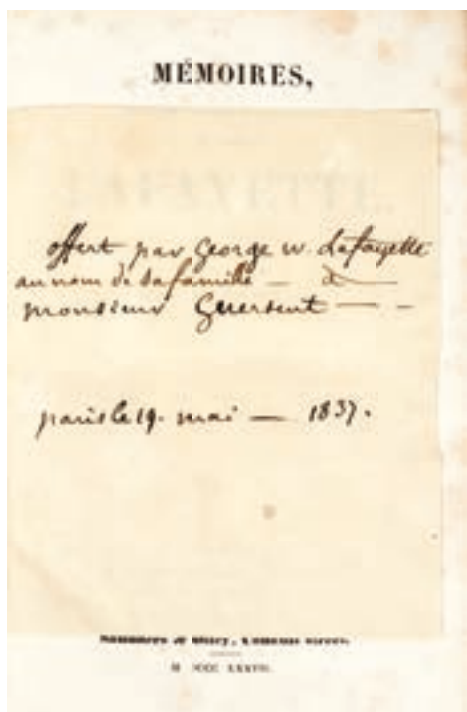 MÉMOIRES,
LAFAYETTE
offert par George W. Lafayette
au nom de sa famille — à —
monsieur Guersent — -
paris le 19. mai — 1837.
M DCCC XXXVII.